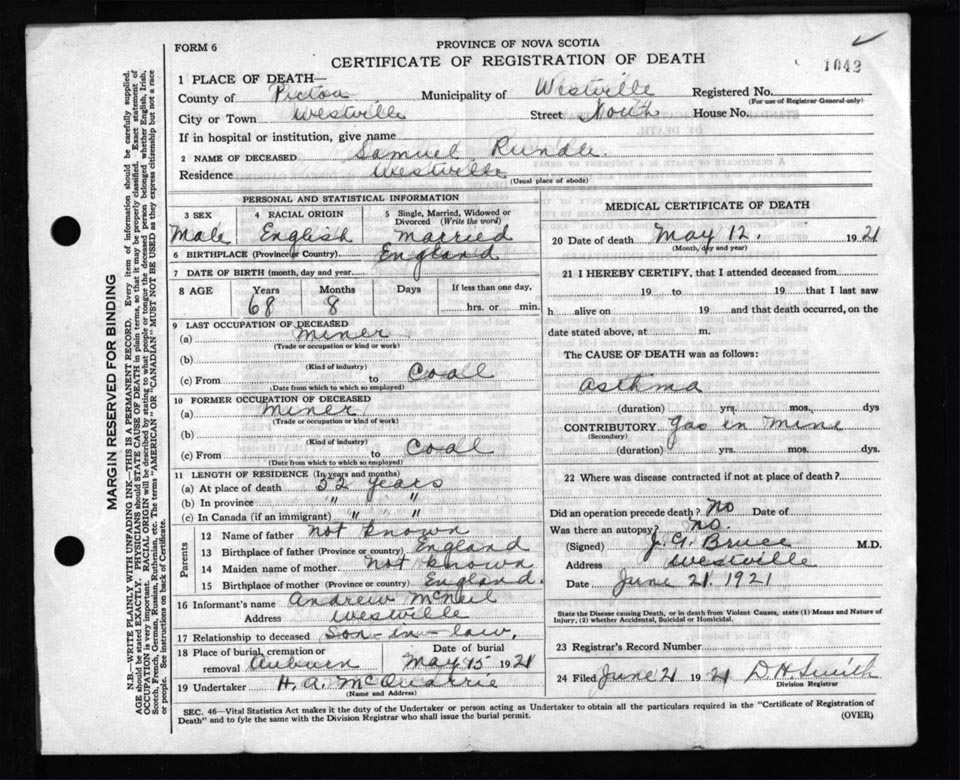 FORM 6
PROVINCE OF NOVA SCOTIA
CERTIFICATE OF REGISTRATION OF DEATH
1042
1 PLACE OF DEATH—
County of Pictou Municipality of Westville Registered No.
(For use of Registrar General only)
City or Town Westville Street North House No.
If in hospital or institution, give name
2 NAME OF DECEASED Samuel Rundle.
Residence Westville
(Usual place of abode)
PERSONAL AND STATISTICAL INFORMATION
3 SEX 4 RACIAL ORIGIN 5 Single, Married, Widowed or Divorced (Write the word)
Male English Married
6 BIRTHPLACE (Province or Country) England
7 DATE OF BIRTH (month, day and year)
8 AGE Years Months Days If less than one day,
68 8 hrs. or min.
9 LAST OCCUPATION OF DECEASED
(a) Miner
(Trade or occupation or kind or work)
(b)
(Kind of industry)
(c) From to Coal
(Date from which to which so employed)
10 FORMER OCCUPATION OF DECEASED
(a) Miner
(Trade or occupation or kind or work)
(b)
(Kind of industry)
(c) From to Coal
(Date from which to which so employed)
11 LENGTH OF RESIDENCE (In years and months)
(a) At place of death 32 years
(b) In province " "
(c) In Canada (if an immigrant) " " "
Parents
12 Name of father not known
13 Birthplace of father (Province or country) England
14 Maiden name of mother not known
15 Birthplace of mother (Province or country) England.
16 Informant's name Andrew McNeil
Address Westville
17 Relationship to deceased son-in-law,
18 Place of burial, cremation or removal Auburn Date of burial May 15 1921
19 Undertaker H. A. McQuarrie
(Name and Address)
MEDICAL CERTIFICATE OF DEATH
20 Date of death May 12. 1921
(Month, day and year)
21 I HEREBY CERTIFY, that I attended deceased from
19 to 19 that I last saw
h alive on 19 and that death occurred, on the
date stated above, at m.
The CAUSE OF DEATH was as follows:
asthma
(duration) yrs. mos. dys
CONTRIBUTORY gas in mine
(Secondary)
(duration) yrs. mos. dys.
22 Where was disease contracted if not at place of death?
Did an operation precede death? No Date of
Was there an autopsy? no.
(Signed) J. G. Bruce M.D.
Address Westville
Date June 21. 1921
State the Disease causing Death, or in death from Violent Causes, state (1) Means and Nature of
Injury, (2) whether Accidental, Suicidal or Homicidal.
23 Registrar's Record Number
24 Filed June 21 1921 D. H. Smith
Division Registrar
SEC. 46—Vital Statistics Act makes it the duty of the Undertaker or person acting as Undertaker to obtain all the particulars required in the "Certificate of Registration of
Death" and to fyle the same with the Division Registrar who shall issue the burial permit. (OVER)
MARGIN RESERVED FOR BINDING
N.B.—WRITE PLAINLY WITH UNFADING INK—THIS IS A PERMANENT RECORD. Every item of information should be carefully supplied.
AGE should be stated EXACTLY. PHYSICIANS should STATE CAUSE OF DEATH in plain terms, so that it may be properly classified. Exact statement of
OCCUPATION is very important. RACIAL ORIGIN will be described by stating to what people or tongue the deceased person belonged whether English, Irish,
Scotch, French, German, Russian, Ruthenian, etc. The terms "AMERICAN" OR "CANADIAN" MUST NOT BE USED as they express citizenship but not a race
or people. See instructions on back of Certificate.